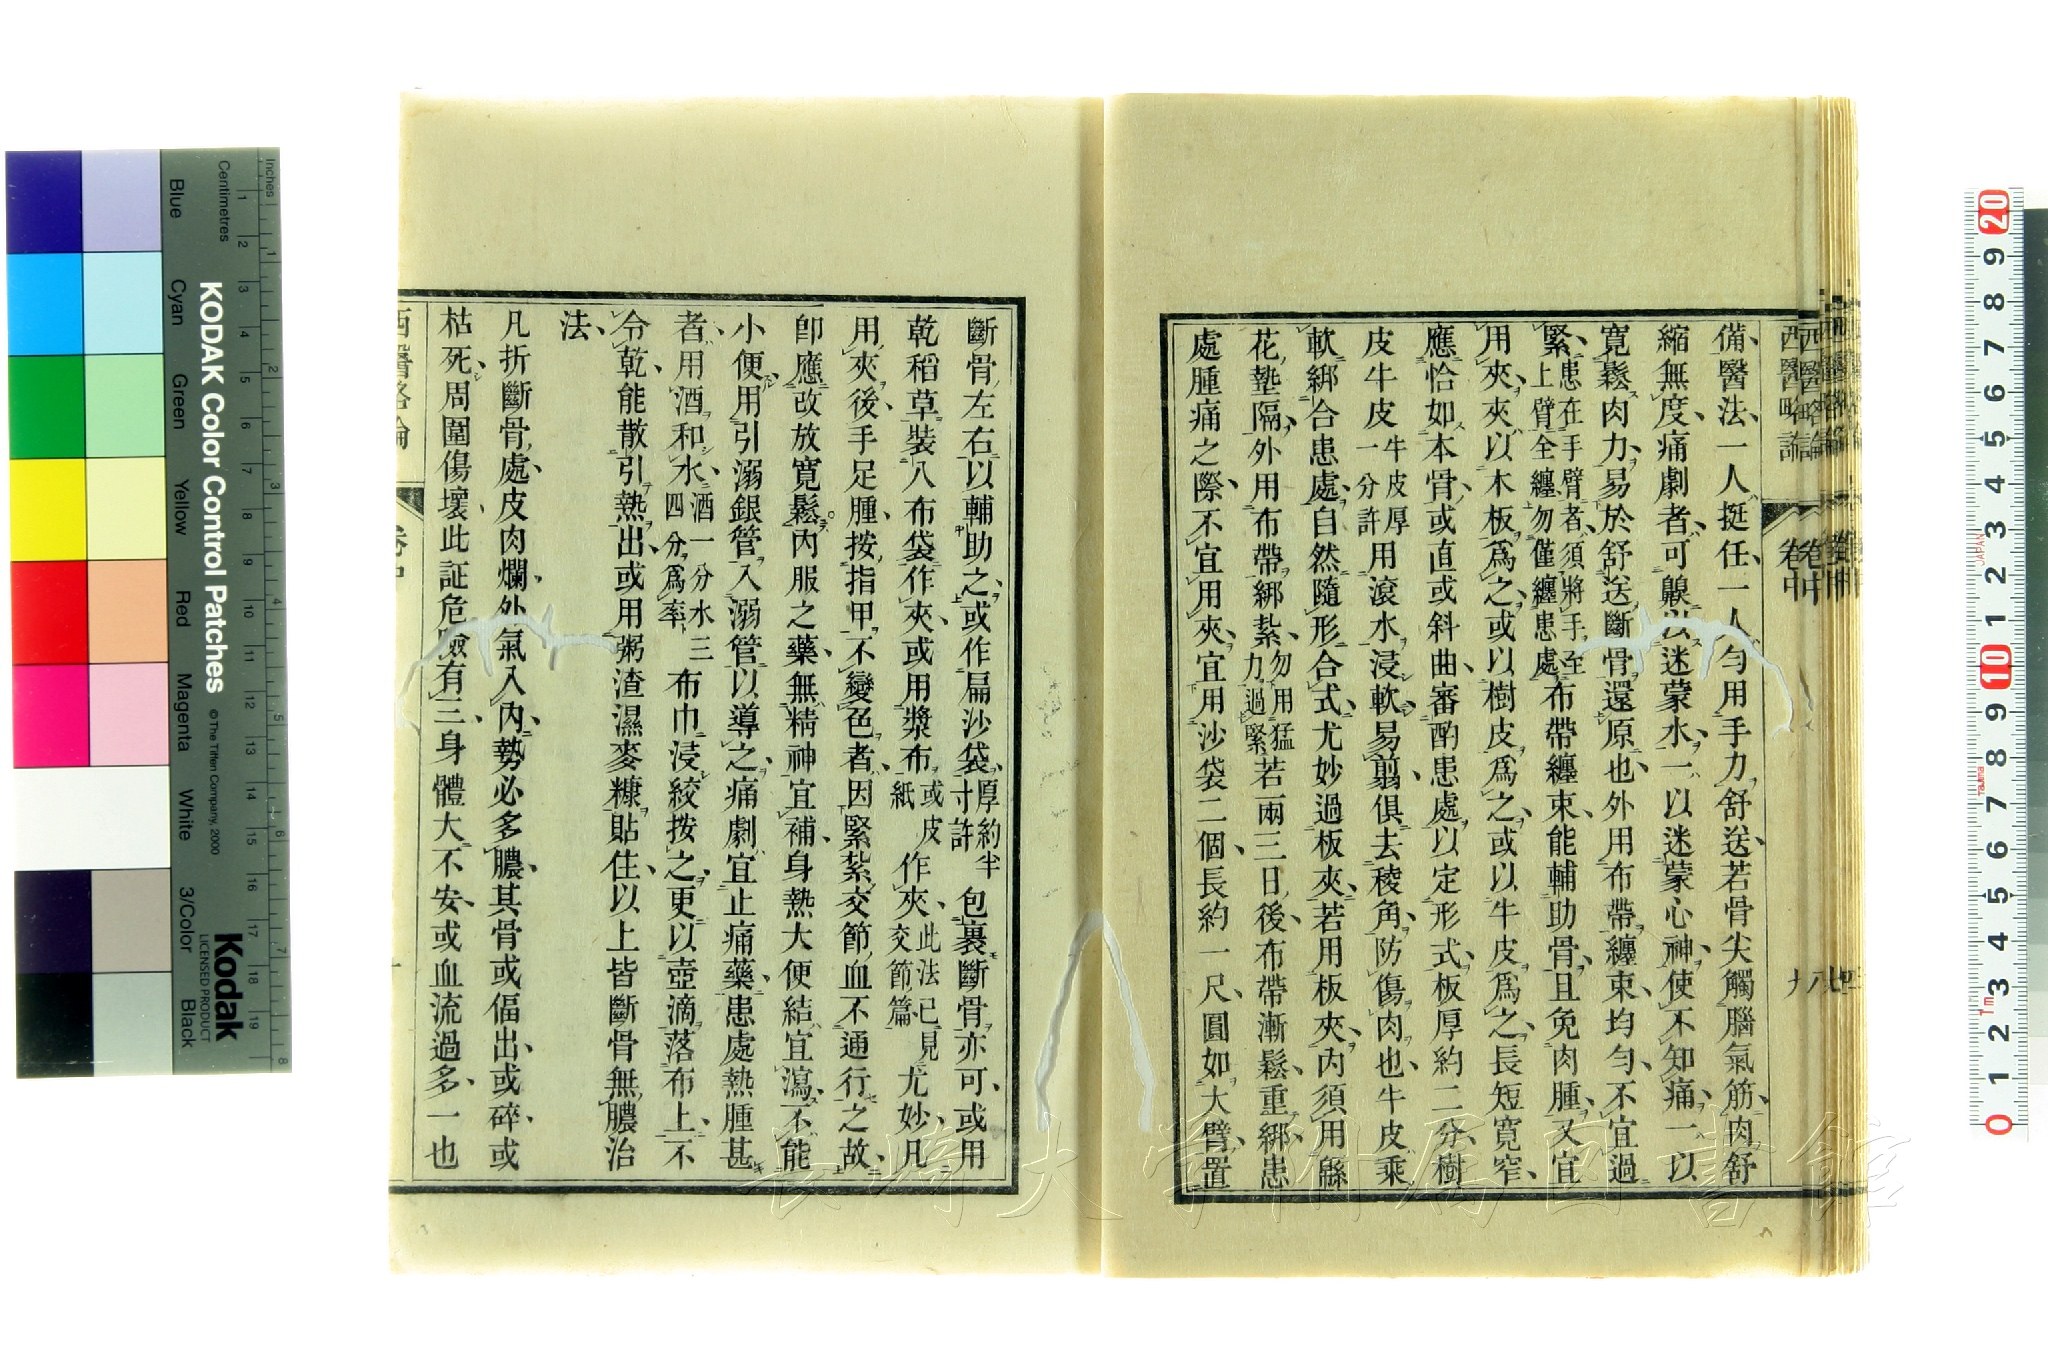 備醫法一人挺任一人勻用手力舒送若骨尖觸腦氣筋肉舒
縮無度痛劇者可齅以迷蒙水一以迷蒙心神使不知痛一以
寬鬆肉力易於舒送斷骨還原也外用布帶纏束均勻不宜過
緊患在手臂者須將手至上臂全纏勿僅纏患處布帶纏束能輔助骨且免肉腫又宜
用夾夾以木板爲之或以樹皮爲之或以牛皮爲之長短寬窄
應恰如本骨或直或斜曲審酌患處以定形式板厚約二分樹
皮牛皮牛皮厚一分許用滾水浸軟易翦俱去稜角防傷肉也牛皮乘
軟綁合患處自然隨形合式尤妙過板夾若用板夾內須用緜
花墊隔外用布帶綁紮勿用猛力過緊若兩三日後布帶漸鬆重綁患
處腫痛之際不宜用夾宜用沙袋二個長約一尺圓如大臂置
斷骨左右以輔助之或作扁沙袋厚約半寸許包裹斷骨亦可或用
乾稻草裝入布袋作夾或用漿布或皮紙作夾此法已見交節篇尤妙凡
用夾後手足腫按指甲不變色者因緊紮交節血不通行之故
卽應改放寬鬆內服之藥無精神宜補身熱大便結宜瀉不能
小便用引溺銀管入溺管以導之痛劇宜止痛藥患處熱腫甚
者用酒和水酒一分水三四分爲率布巾浸絞按之更以壺滴落布上不
令乾能散引熱出或用粥渣濕麥糠貼住以上皆斷骨無膿治
法
凡折斷骨處皮肉爛外氣入內勢必多膿其骨或偪出或碎或
枯死周圍傷壞此証危險有三身體大不安或血流過多一也
西醫略論
卷中
十八
西醫略論
卷中
長崎大学附属図書館
KODAK Color Control Patches
© The Tiffen Company, 2000
Kodak
LICENSED PRODUCT
Inches
Centimetres
Blue
Cyan
Green
Yellow
Red
Magenta
White
3/Color
Black
1 2 3 4 5 6 7 8 9 10 11 12 13 14 15 16 17 18 19
1 2 3 4 5 6 7 8
20 9 8 7 6 5 4 3 2 1 10 9 8 7 6 5 4 3 2 1 0
JAPAN